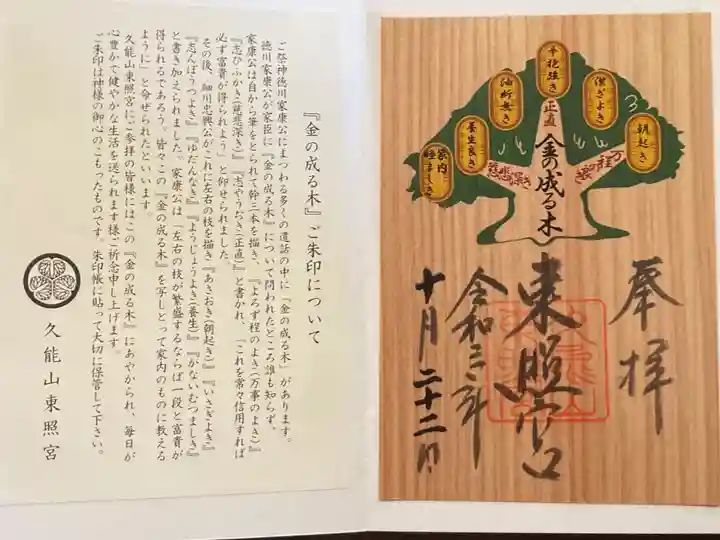 『金の成る木』ご朱印について
ご祭神徳川家康公にまつわる多くの遺話の中に「金の成る木」があります。
徳川家康公が家臣に『金の成る木』について問われたところ誰も知らず。
家康公は自から筆をとられて幹三本を描き、『よろず程のよき(万事のよき)』
『志ひふかき(慈悲深き)』『志やうぢき(正直)』と書かれ、「これを常々信用すれば
必ず富貴が得られよう」と仰せられました。
その後、細川忠興公がこれに左右の枝を描き『あさおき(朝起き)』『いさぎよき』
『志んぼうつよき』『ゆだんなき』『ようじょうよき(養生)』『かないむつましき』
と書き加えられました。家康公は「左右の枝が繁盛するならば一段と富貴が
得られるであろう。皆々この『金の成る木』を写しとって家内のものに教える
ように」と命ぜられたといいます。
久能山東照宮にご参拝の皆様にはこの『金の成る木』にあやかられ、毎日が
心豊かで健やかな生活を送られます様ご祈念申し上げます。
ご朱印は神様の御心のこもったものです。朱印帳に貼って大切に保管して下さい。
久能山東照宮
朝起き
潔ぎよき
辛抱強き
油断無き
養生良き
家内睦ましき
万程
正直
慈悲深き
金の成る木
奉拝
東照宮
令和三年
十月二十二日